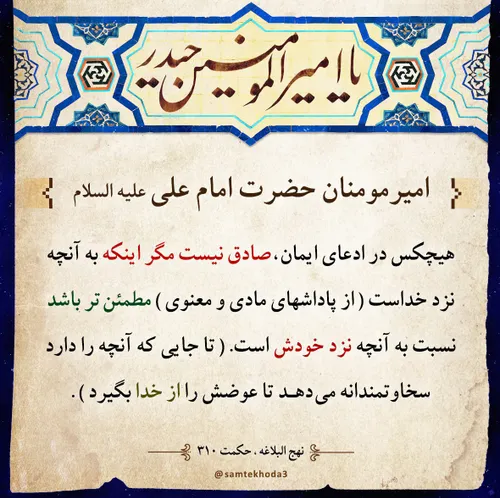 یا امیرالمومنین حیدر
امیرمومنان حضرت امام علی علیه السلام
هیچکس در ادعای ایمان، صادق نیست مگر اینکه به آنچه
نزد خداست ( از پاداشهای مادی و معنوی ) مطمئن تر باشد
نسبت به آنچه نزد خودش است. ( تا جایی که آنچه را دارد
سخاوتمندانه می‌دهد تا عوضش را از خدا بگیرد ) .
نهج البلاغه ، حکمت ۳۱۰
@samtekhoda3